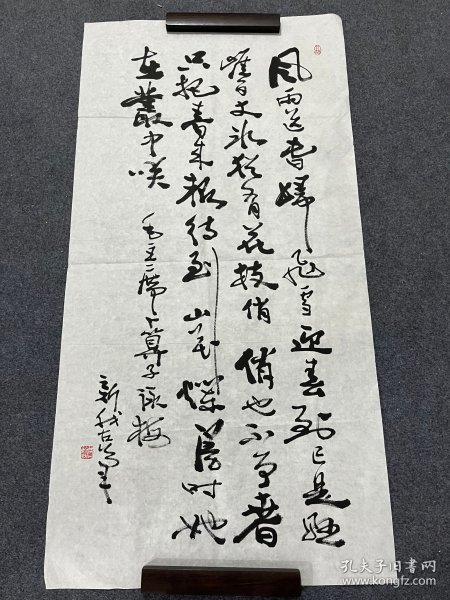 风雨送春归飞雪迎春到已是悬
崖百丈冰犹有花枝俏俏也不争春
只把春来报待到山花爛漫时她
在叢中咲
毛主席卜算子詠梅
孔夫子旧书网
www.kongfz.com